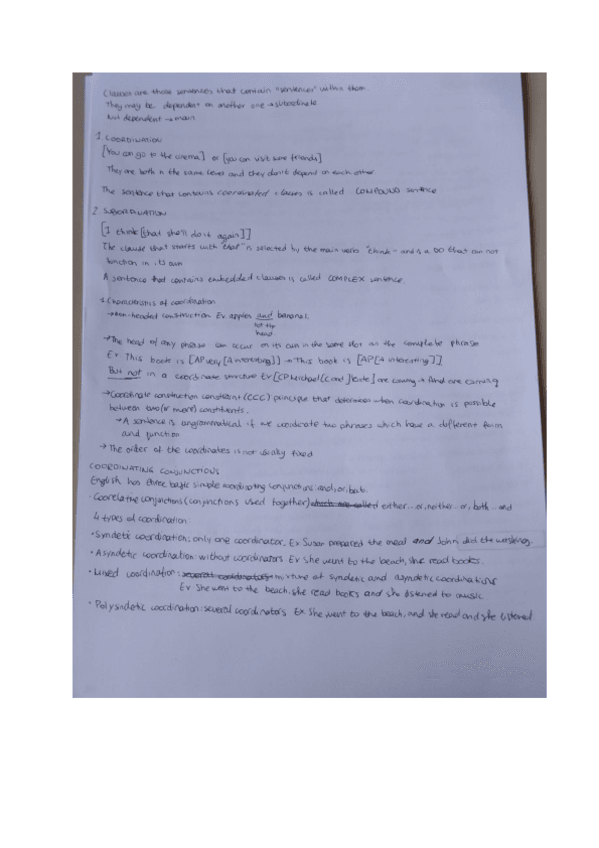 Clauses are those sentences that contain "sentences" within them.
They may be dependent on another one → subordinate
Not dependent → main
1 COORDINATION
[You can go to the cinema] or [you can visit some friends]
They are both in the same level and they don't depend on each other
The sentence that contains coordinated clauses is called COMPOUND sentence
2 SUBORDINATION
[I think [that she'll do it again]]
The clause that starts with "that" is selected by the main verb "think" and is a DO that can not
function in its own
A sentence that contains embedded clauses is called COMPLEX sentence.
Characteristics of coordination
→ Non-headed construction Ex apples and bananas.
not the
head
→ The head of any phrase can occur on its own in the same slot as the complete phrase
Ex This book is [AP very [A interesting]] → This book is [AP [A interesting]]
But not in a coordinate structure Ex [CP Michael [C and] Kate] are coming → And are coming
→ Coordinate construction constraint (CCC) principle that determines when coordination is possible
between two (or more) constituents.
→ A sentence is ungrammatical if we coordinate two phrases which have a different form
and function
→ The order of the coordinates is not usually fixed
COORDINATING CONJUNCTIONS
English has three basic simple coordinating conjunctions: and, or, but.
· Correlative conjunctions (conjunctions used together) which are called either...or, neither...or, both...and
4 types of coordination
• Syndetic coordination: only one coordinator. Ex Susan prepared the meal and John did the washing.
• Asyndetic coordination without coordinators Ex She went to the beach, she read books.
• coordination: several coordinators mixture of syndetic and asyndetic coordinations
Ex She went to the beach, she read books and she listened to music
• Polysyndetic coordination: several coordinators Ex She went to the beach, and she read and she listened